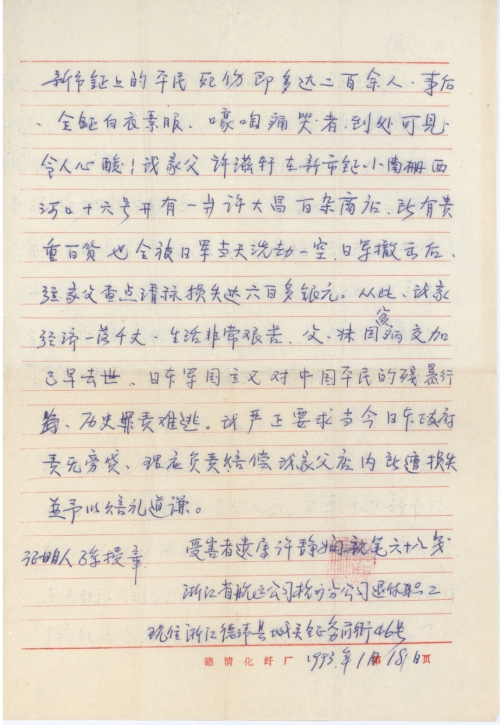 新市镇上的平民死伤即多达二百余人。事后
、全镇白衣素服、嚎啕痛哭者、到处可见、
令人心酸！我家父许滋轩在新市镇小南栅西
河口十六号开有一爿许大昌百杂商店、所有贵
重百货也全被日军当天洗劫一空、日军撤去后、
经家父查点清标损失达六百多银元。从此、我家
经济一落千丈、生活非常艰苦、父、妹因贫病交加
已早去世、日本军国主义对中国平民的残暴行
为、历史罪责难逃。我严正要求当今日本政府
责无旁贷、理应负责赔偿我家父店内所遭损失
并予以赔礼道谦。
证明人 孙授章
受害者遗属许静娴执笔六十八岁
浙江省航运公司杭州分公司退休职工
现住浙江德清县城关镇务前街46号
德清化纤厂 1993年1月18日
第 页